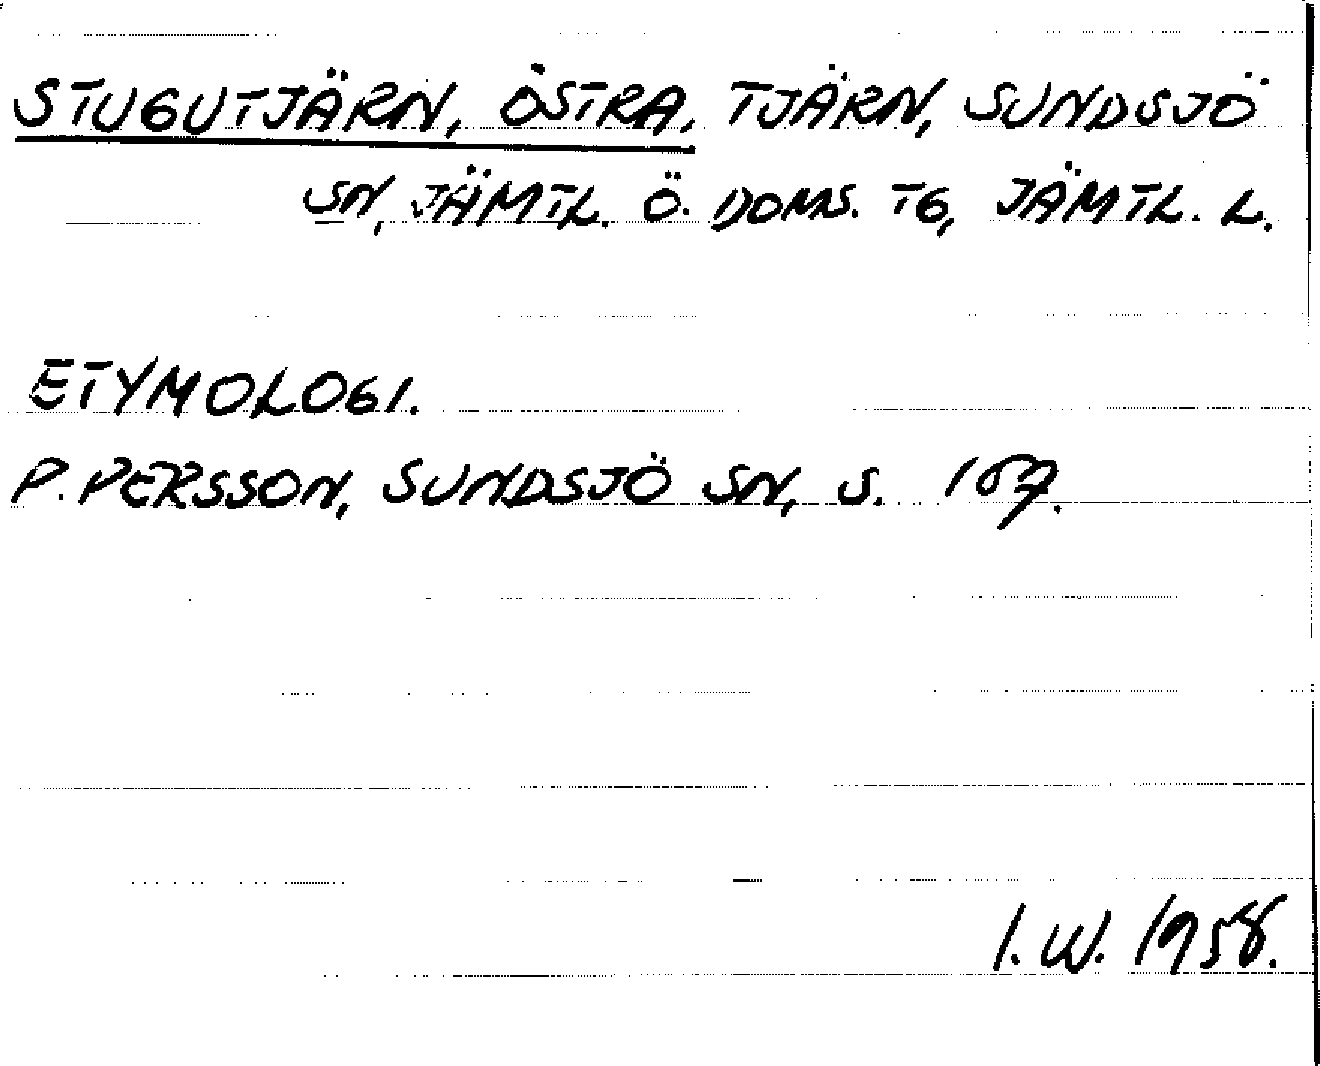 STUGUTJÄRN, ÖSTRA, TJÄRN, SUNDSJÖ
SN, JÄMTL. Ö. DOMS. TG, JÄMTL. L.
ETYMOLOGI.
P. PERSSON, SUNDSJÖ SN, S. 167.
I. W. 1958.